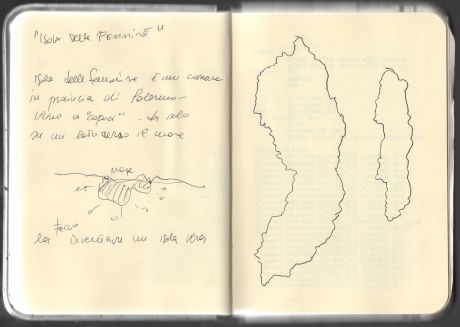 "ISOLA DELLE FEMMINE"
Isola delle femmine è un comune
in provincia di Palermo -
vicino a "Capaci" - da solo
su un lato verso il mare
mare
faccio
la diventare un isola vera